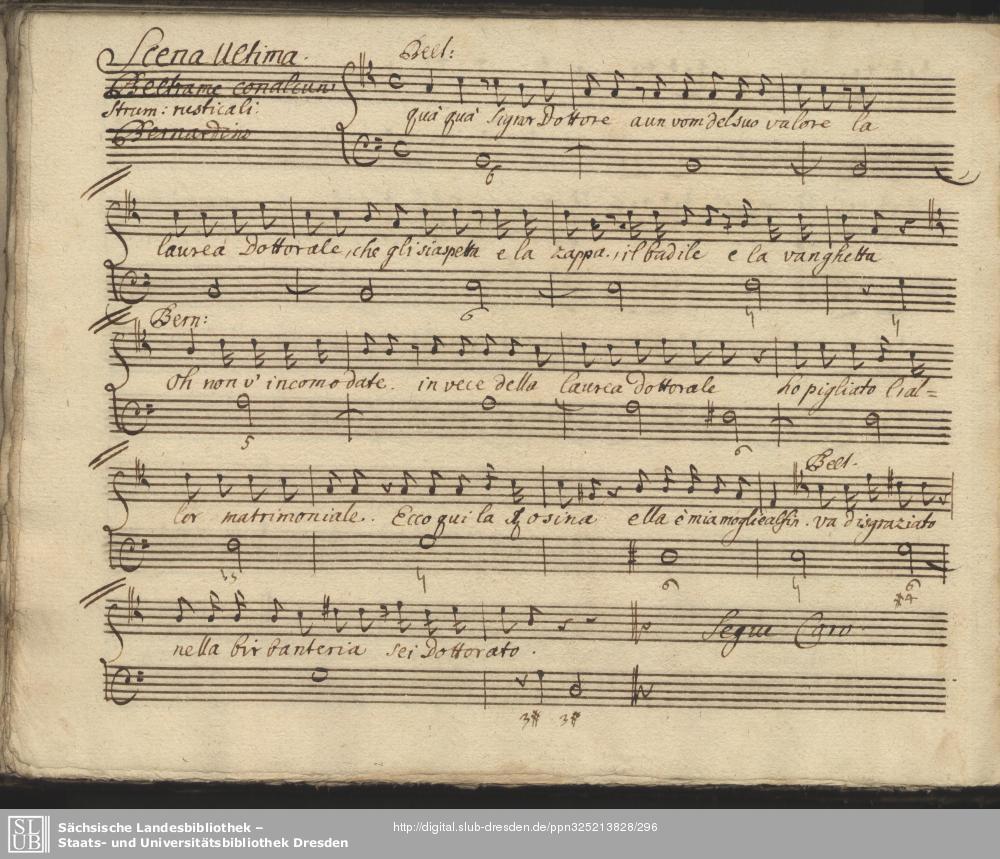 Scena Ultima.
Belt:
Beltrame con alcuni
Strum: rusticali.
Bernardino
quà quà Signor Dottore a un vom del suo valore la
6
laurea Dottorale, che gli si aspetta e la zappa, il badile e la vanghetta
6
Bern:
Oh non v' incomodate. in vece della laurea dottorale ho pigliato l'al=
5 6
Belt.
lor matrimoniale. Ecco qui la Rosina ella è mia moglie alfin. va disgraziato
6 6
nella birbanteria sei Dottorato.
Segue Coro.
3# 3#
SLUB
Sächsische Landesbibliothek –
Staats- und Universitätsbibliothek Dresden
http://digital.slub-dresden.de/ppn325213828/296